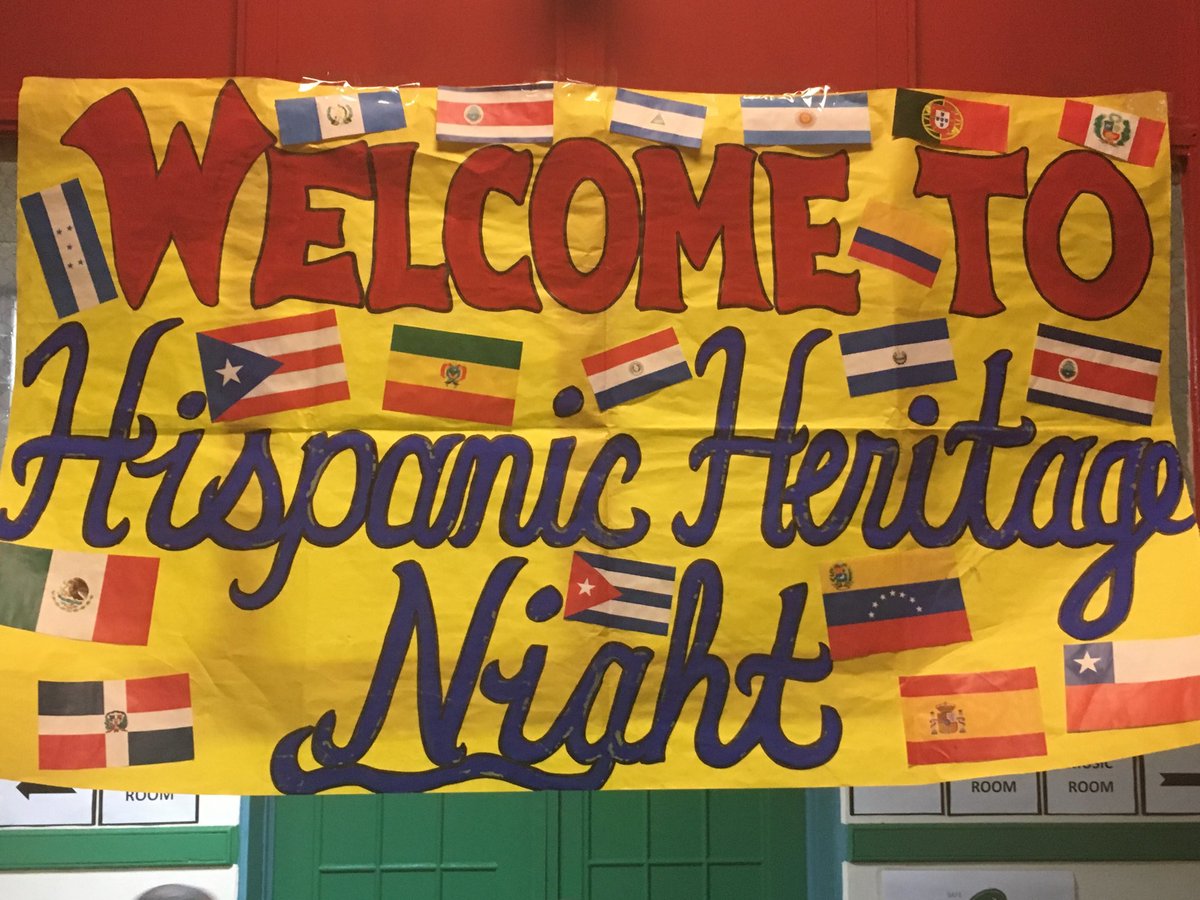 WELCOME TO
Hispanic Heritage
Night
ROOM
ROOM
MUSIC
ROOM